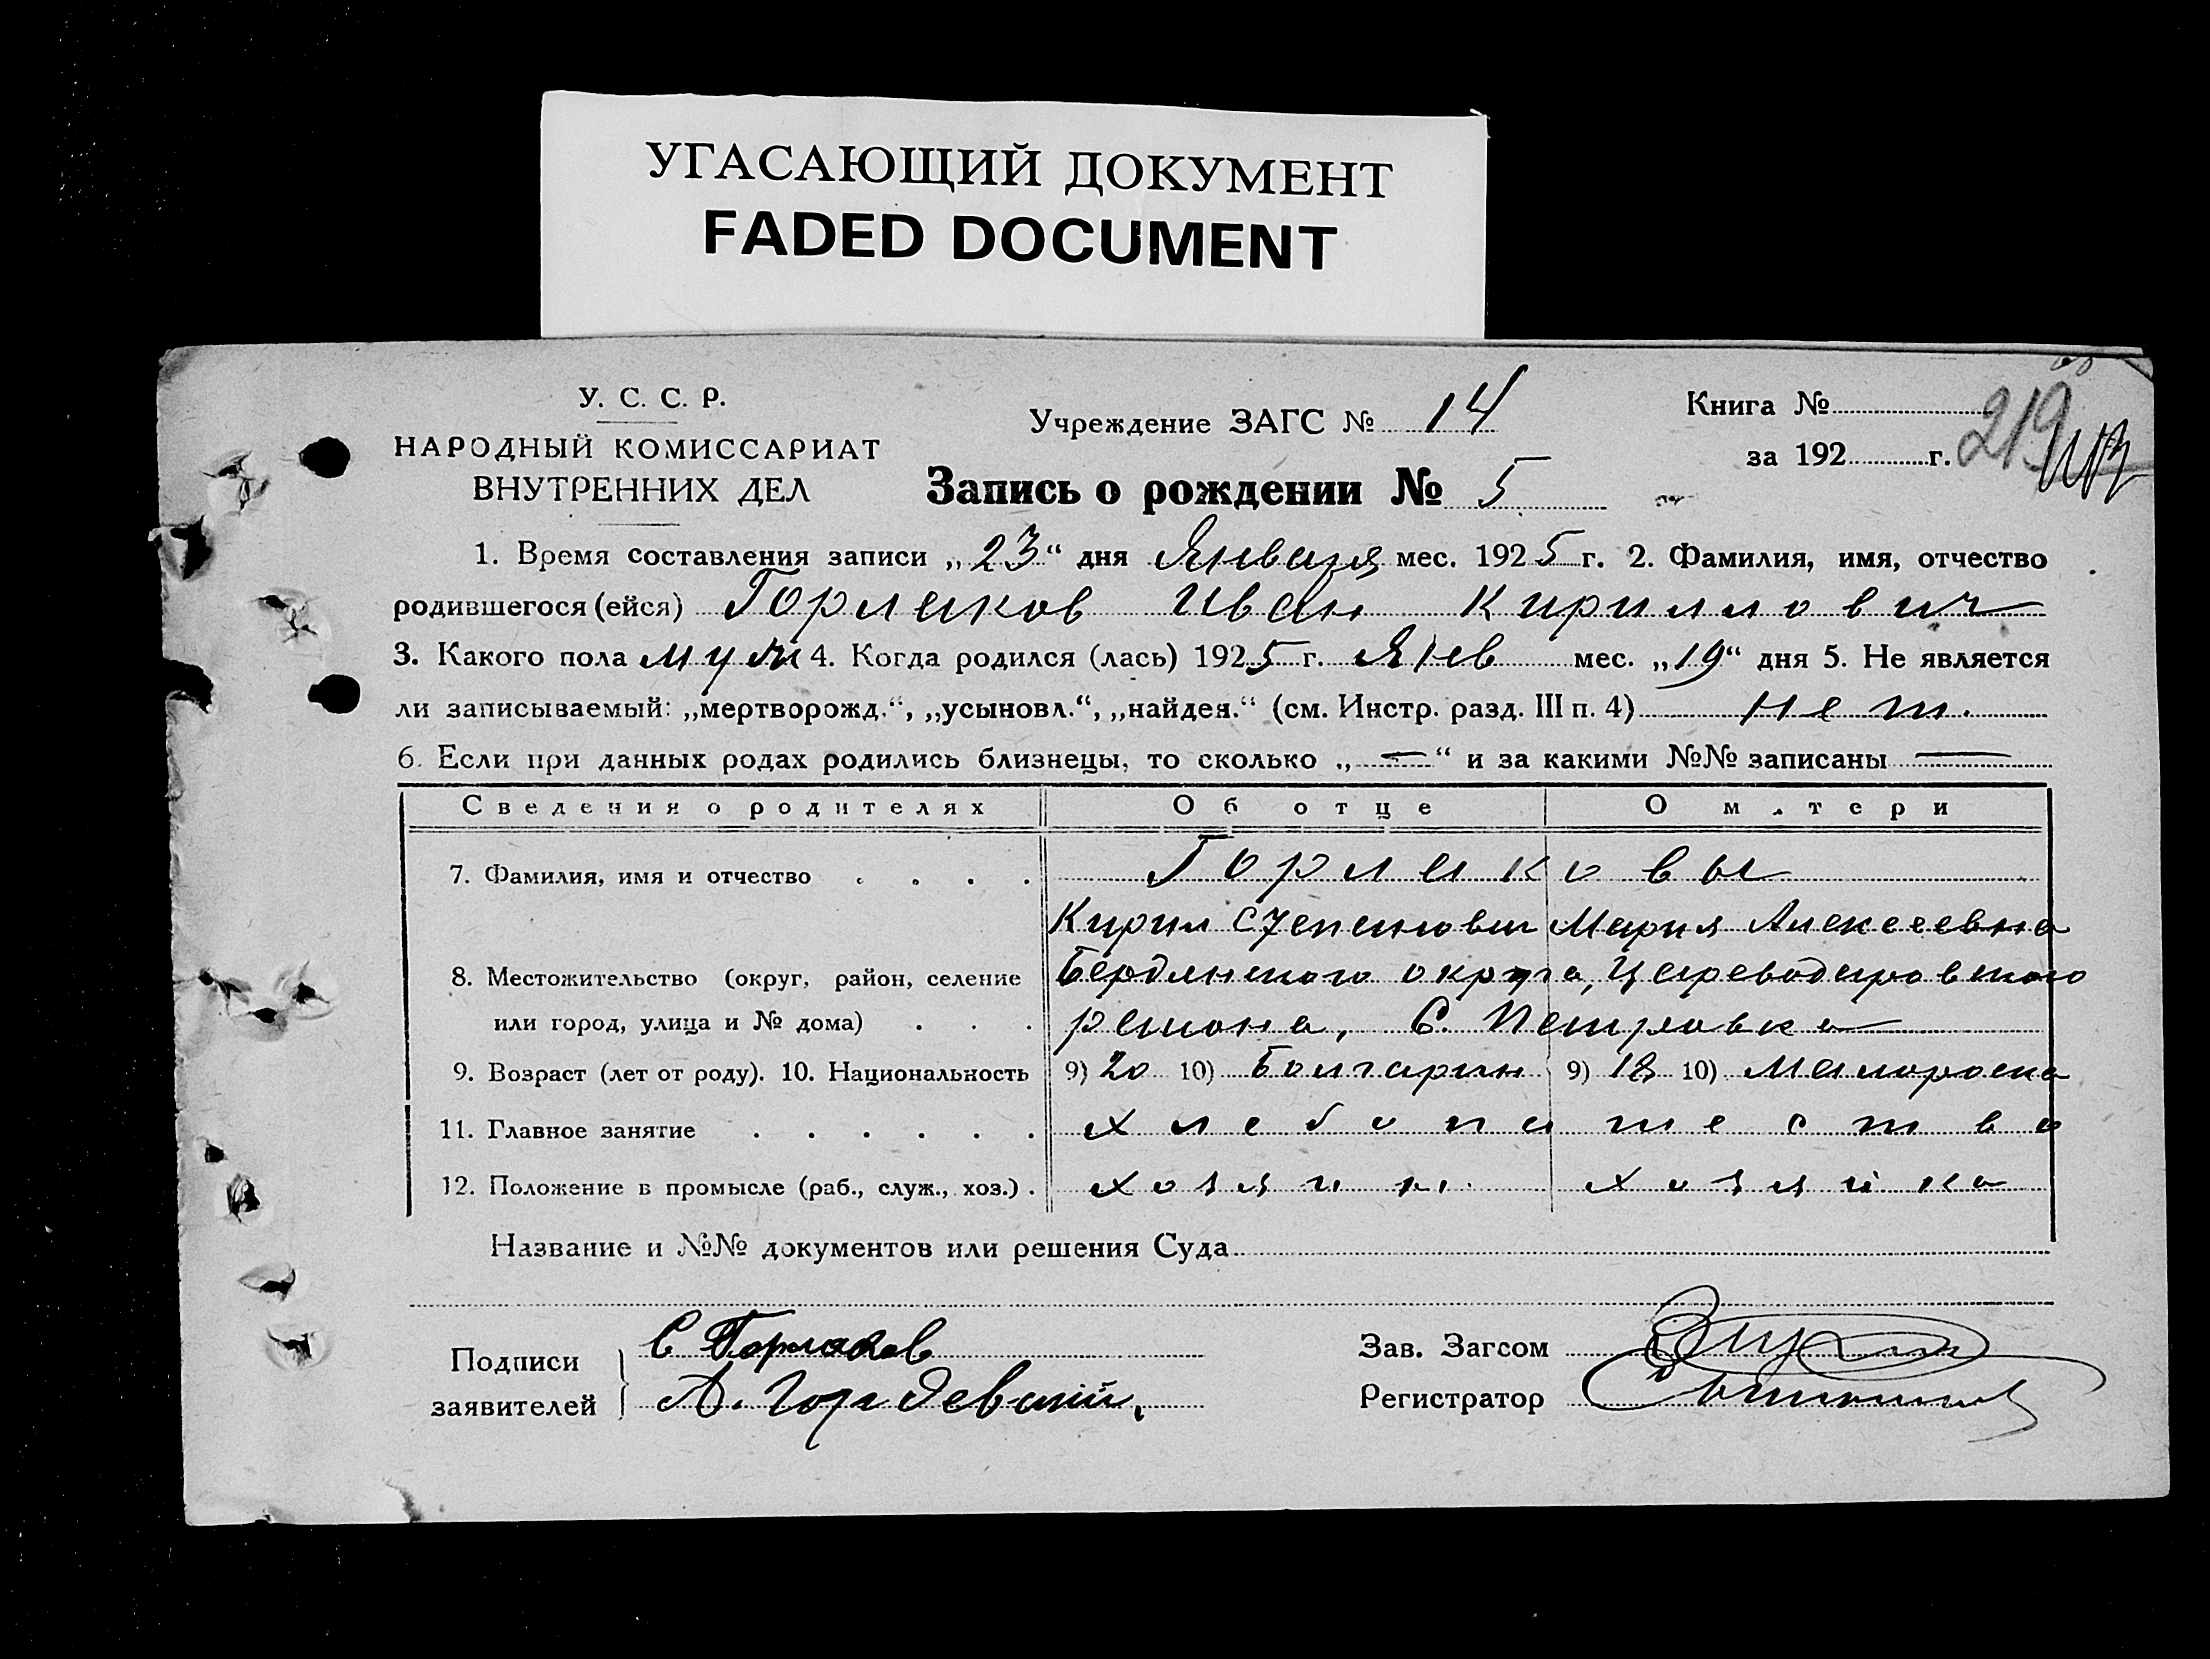 УГАСАЮЩИЙ ДОКУМЕНТ
FADED DOCUMENT
У. С. С. Р.
НАРОДНЫЙ КОМИССАРИАТ
ВНУТРЕННИХ ДЕЛ
Учреждение ЗАГС № 14
Книга №
за 192 г.
219
Запись о рождении № 5
1. Время составления записи „23“ дня Января мес. 1925 г. 2. Фамилия, имя, отчество
родившегося (ейся) Горлаков Иван Кириллович
3. Какого пола муж 4. Когда родился (лась) 1925 г. Янв мес. „19“ дня 5. Не является
ли записываемый: „мертворожд.“, „усыновл.“, „найден.“ (см. Инстр. разд. III п. 4) нет.
6. Если при данных родах родились близнецы, то сколько „—“ и за какими №№ записаны —
Сведения о родителях Об отце О матери
7. Фамилия, имя и отчество Горлаковы
Кирил Степанович Мария Алексеевна
8. Местожительство (округ, район, селение Бердянского округа, Цареводаровского
или город, улица и № дома) района, С. Петровка
9. Возраст (лет от роду). 10. Национальность 9) 20 10) Болгарин 9) 18 10) Малороска
11. Главное занятие хлебопашество
12. Положение в промысле (раб., служ., хоз.) хозяин. хозяйка
Название и №№ документов или решения Суда
Подписи заявителей
С Горлаков
А.
Зав. Загсом
Регистратор